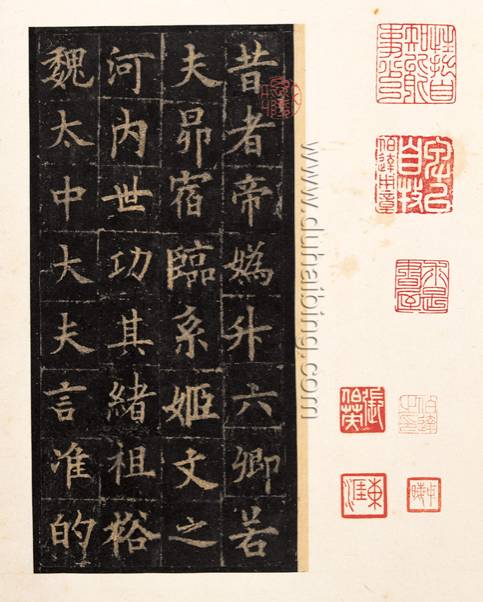 昔者帝媯升六卿若
夫昴宿臨系姬文之
河内世功其緒祖裕
魏太中大夫言准的
www.duhaibing.com
張伯英